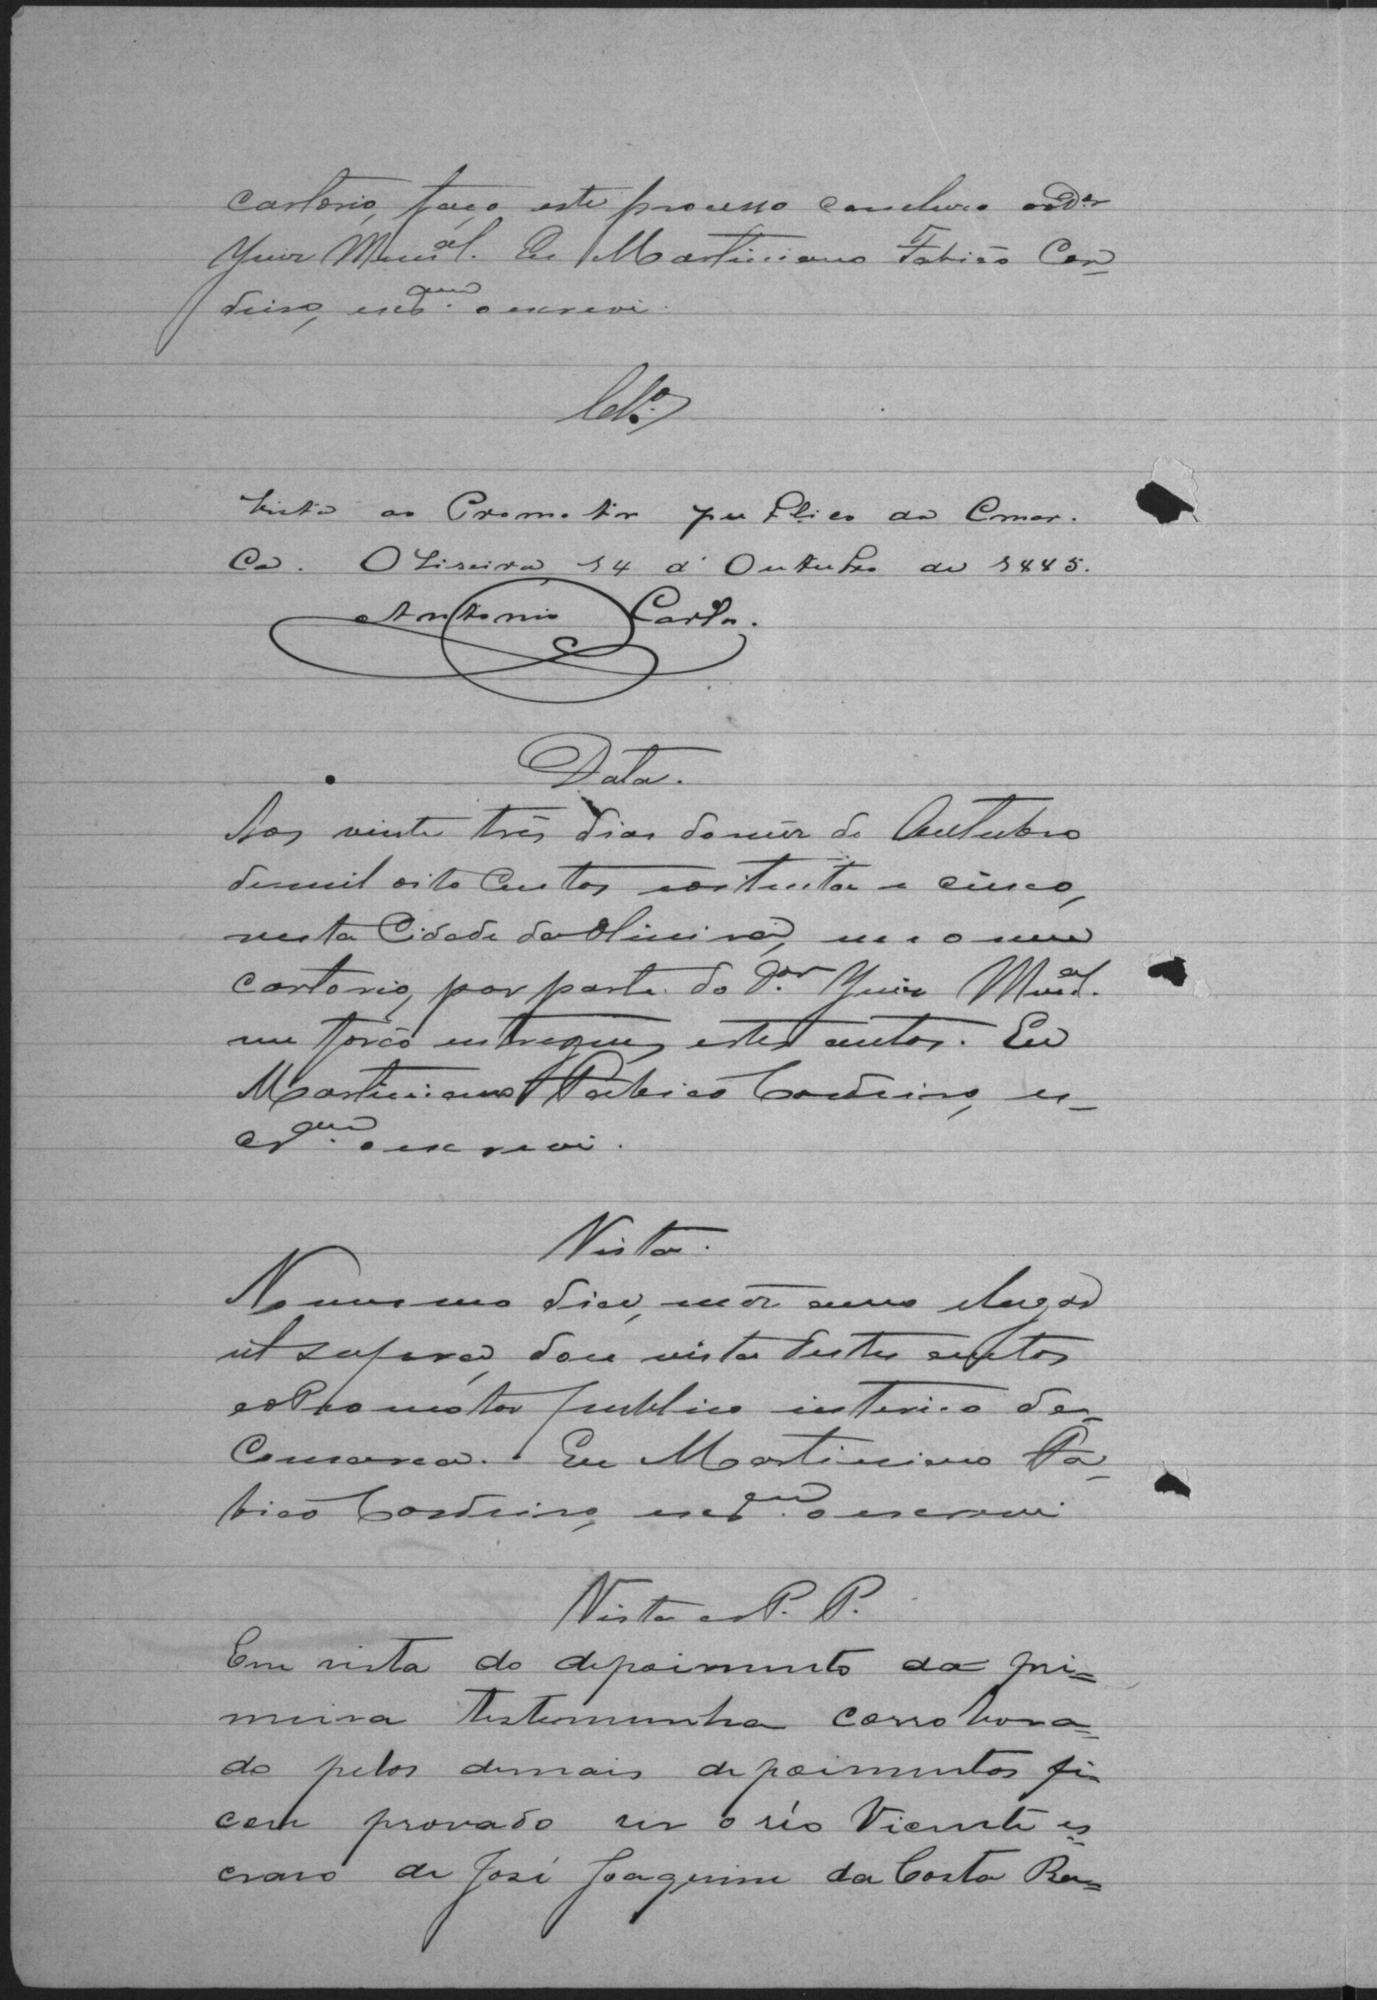 cartorio, faço este processo concluso ao Dor
Juiz Munal. Eu Martiniano Fabião Cor-
deiro, escram o escrevi.
Clo.
Vista ao Promotor publico da Comar.
ca. Oliveira, 14 d' Outubro de 1885.
Antonio Carlos.
Data.
Aos vinte tres dias do mêz de Outubro
de mil oito Centos e oitenta e cinco,
nesta Cidade da Oliveira, em o meu
cartorio, por parte do Dor Juiz Munal.
me forão entregues estes autos. Eu
Martiniano Fabião Cordeiro, es-
cram o escrevi.
Vista.
No mesmo dia, mêz anno e lugar
ut supra, dou vista destes autos
ao Promotor publico interino da
Comarca. Eu Martiniano Fa-
bião Cordeiro, escram o escrevi
Vista ao P. P.
Em vista do depoimento da pri=
meira testemunha corrobora=
do pelos demais depoimentos fi-
cou provado ser o réo Vicente es
cravo de José Joaquim da Costa Ra=